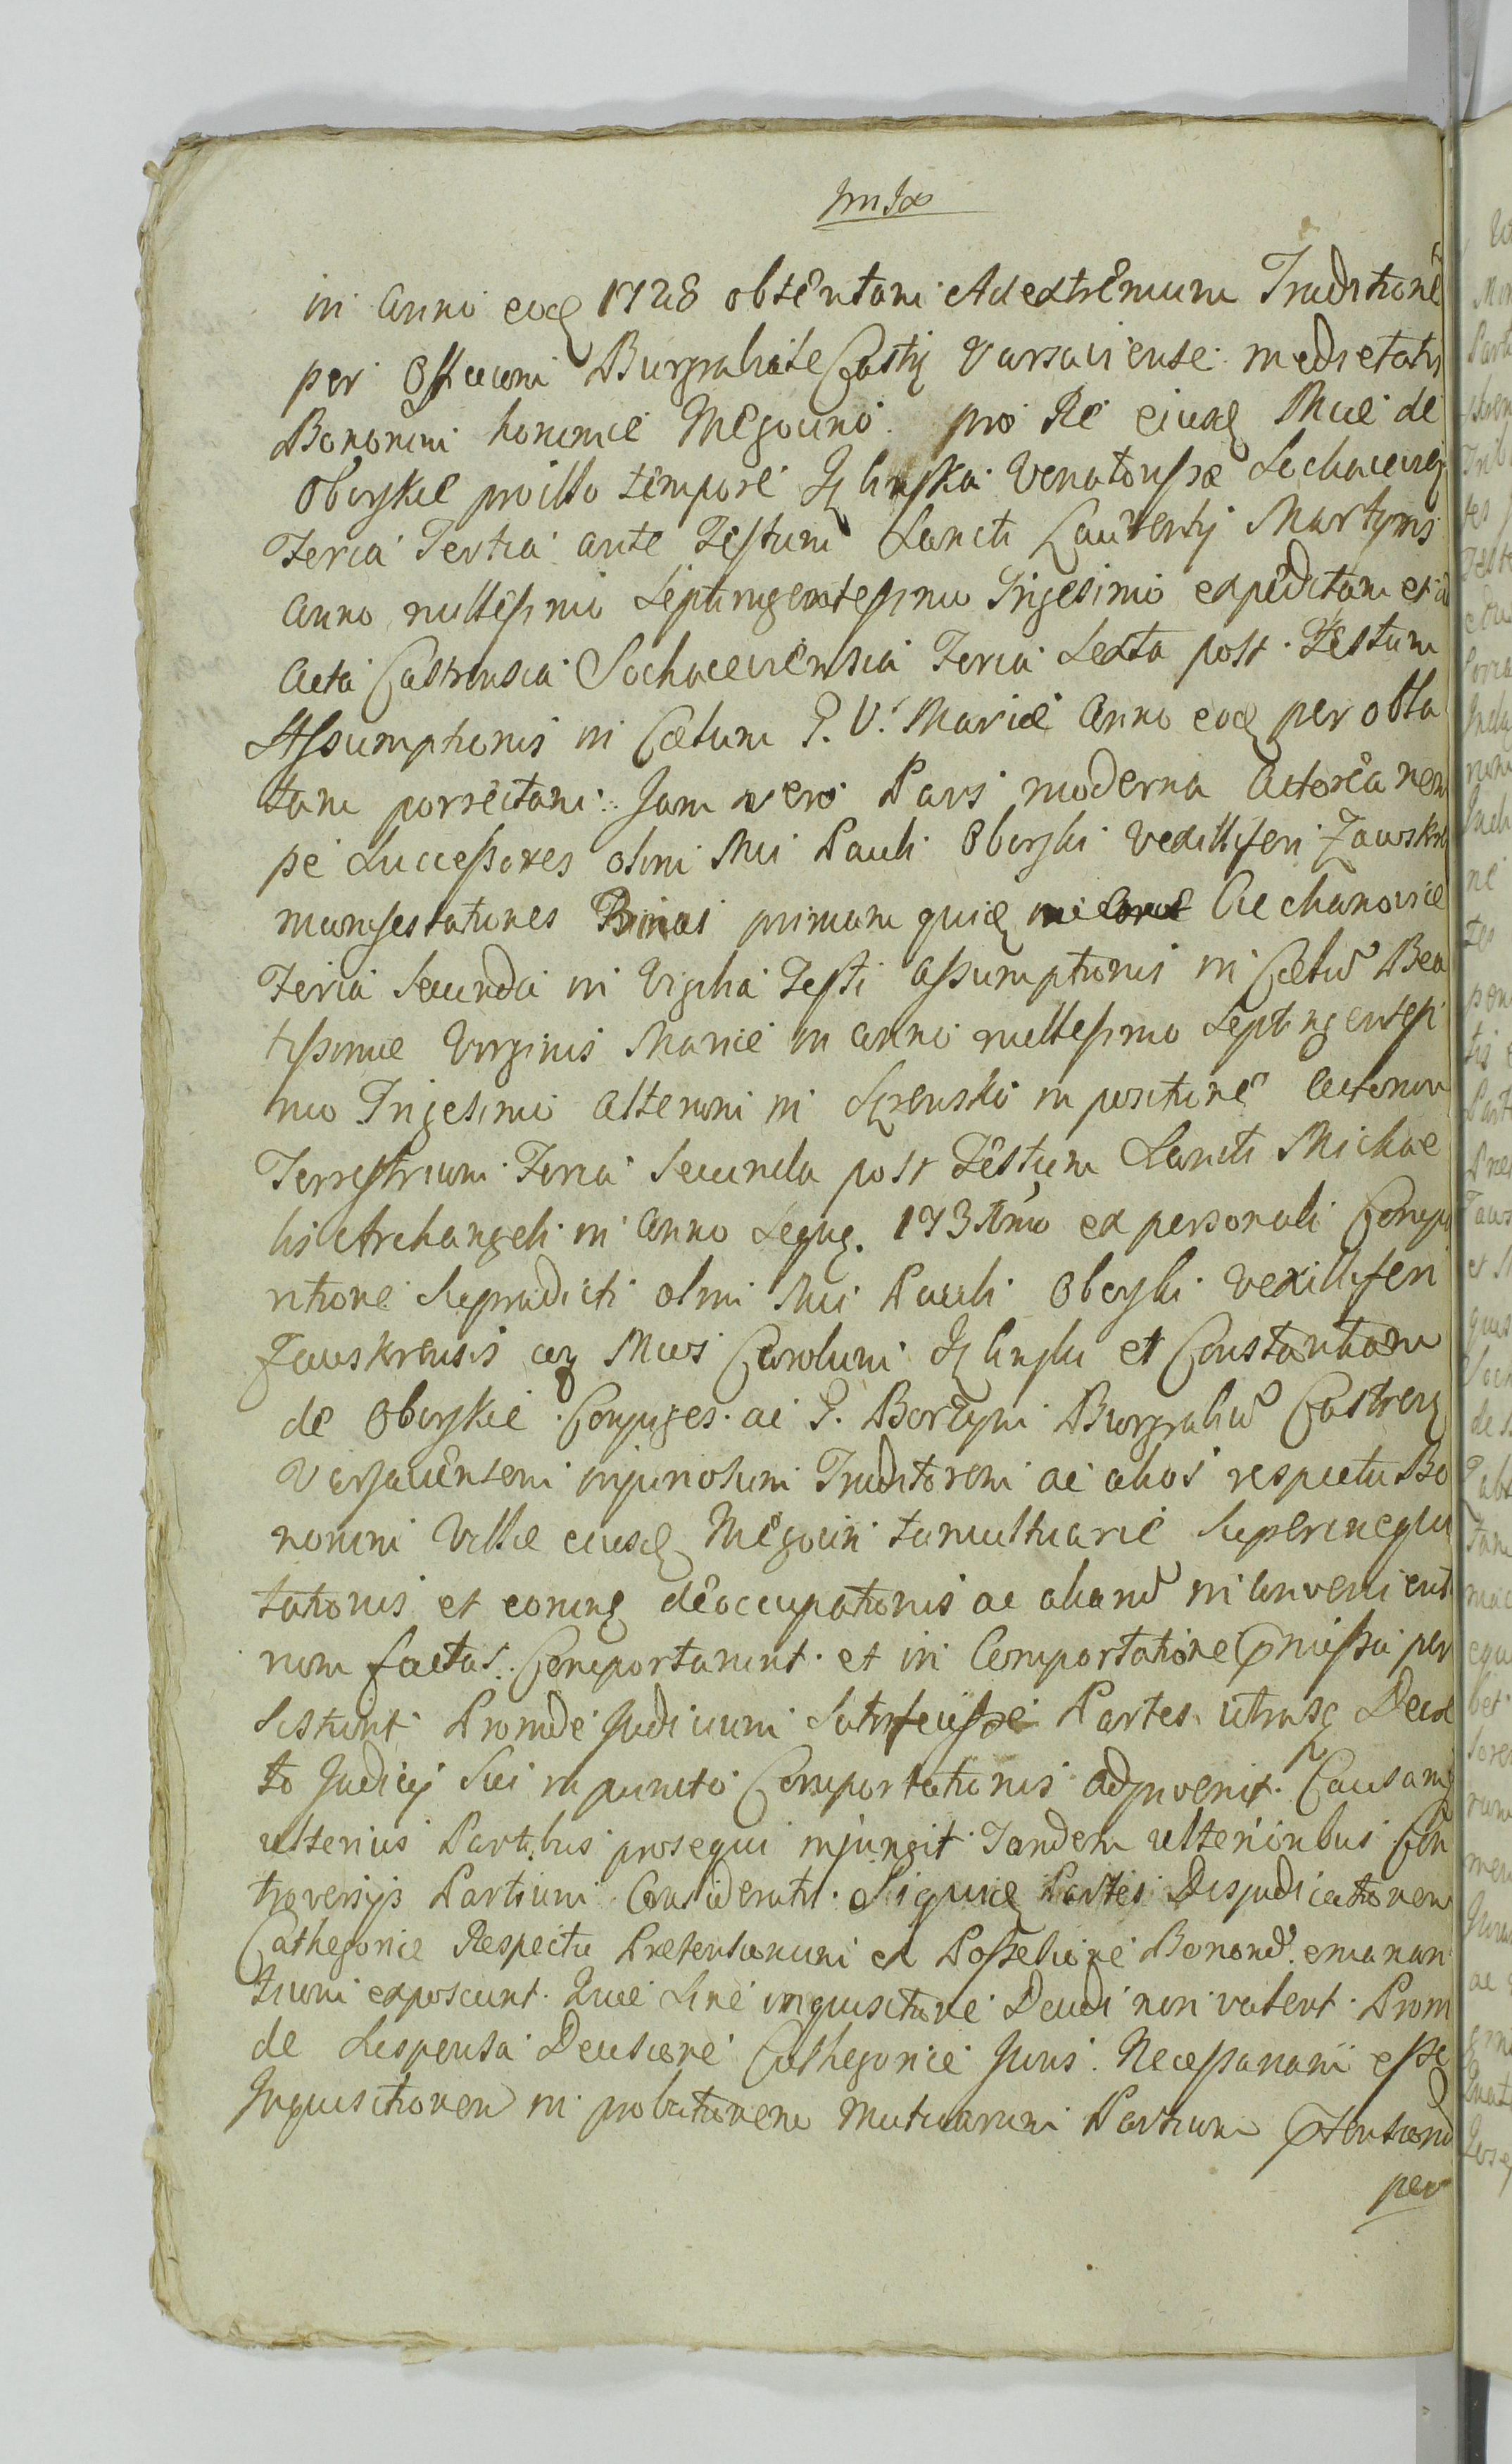 in Anno eod 1728 obtentam Ad extremum Traditionē
per Officium Burgrabiale Castri Varsaviense medietatis
Bonorum honimie Megouno pro Re eiusd Mcae de
Oborskie pro illo tempore venatorissae Sochacevi
Feria Tertia ante Festum Sancti Laurentij Martyris
Anno millesimo Septingentesimo Trigesimo expeditam et
Acta Castrensia Sochaceviensia Feria Sexta post Festum
Assumptionis in Coelum P. V. Mariae Anno eod per obla
tam porrectam. Jam vero Pars moderna Actorea nem
pe Successores olim Mci Pauli Oborski Vexilliferi Zawskr
manifestationes Binas primam quid Ciechanoviae
Feria Secunda in Vigilia Festi Assumptionis in Coelū Bea
tissimae Virginis Mariae in Anno millesimo Septingentesi
mo Trigesimo alteram in Szrensko in positione Actorum
Terrestrium Feria Secunda post Festum Sancti Michae
lis Archangeli in Anno Seqng. 173 ex personali Compa
ritione Supradicti olim Mci Pauli Oborski Vexilliferi
Zawskrensis Mcos Carolum et Constantiam
de Oborskie Conjuges ac P. Borzym Burgrabiū Castren
Varsaviensem injuriosum Traditorem ac alios respectu Bo
norum Villae eiusd Megouin tumultuarie Superinequi
tationis et eorund deoccupationis ac aliarū inconvenient
num factas. Comportarunt et in Comportatione Pmissa per
sistunt Proinde Judicium Satisfecisse Partes utrasq Decre
to Judicij Sui in puncto Comportationis adjnvenit. Causamq
ulterius Partibus prosequi injungit Tandem ulterioribus Con
troversijs Partium Consideratis. Siquid Partes Disjudicationem
Cathegoriae Respectu Pretensionum ex Possessione Bonorū emanan
tium exposcunt. Quae Sine inquisitione Decidi non valent. Proin
de Suspensa Decisione Cathegoriae Juris. Necessariam esse
Inquisitionem in probationem Mutuarum Partium Ptensionū
per